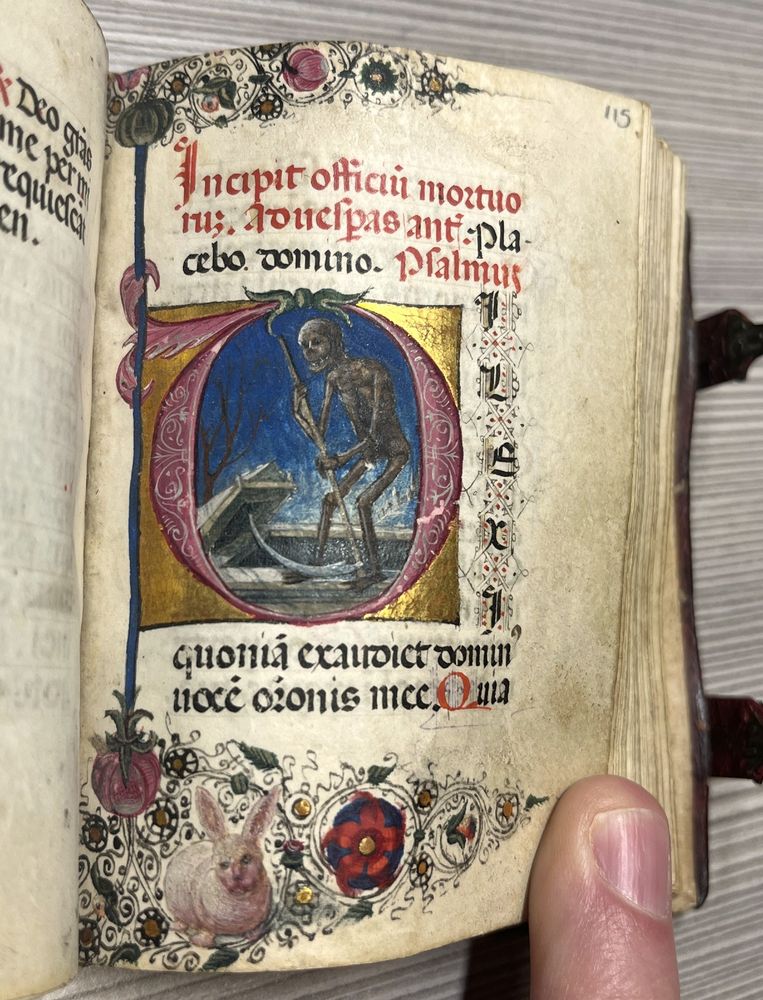 Deo grãs
me per mi
requiescãt
en.
115
Incipit officiũ mortuo
ruꝫ. Ad uesp̃as ant̃. Pla-
cebo domino. Psalmus
D
I
L
E
X
I
quoniã exaudiet dominꝰ
uocẽ or̃onis mee. Quia